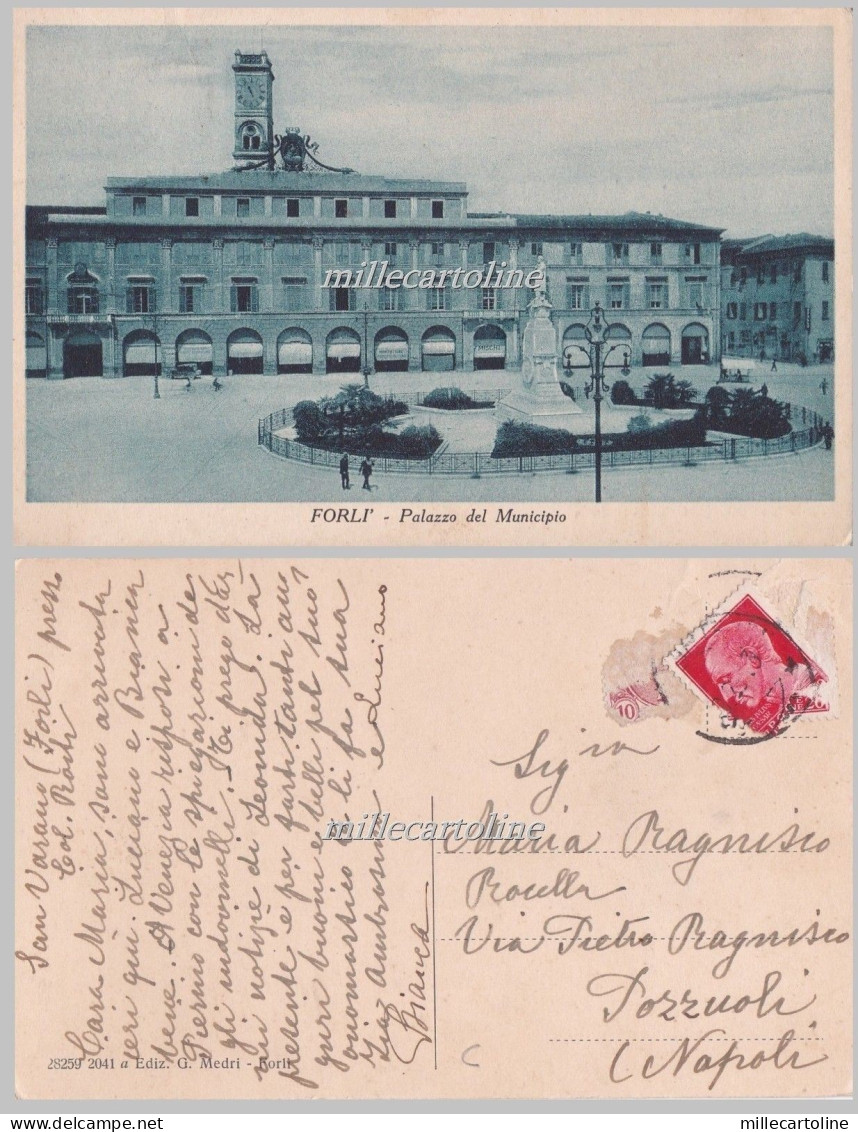 millecartoline
MESCHI
FORLI' - Palazzo del Municipio
San Varano (Forlì) press
Col. Rasti
Cara Maria, sono arrivata
ieri qui. Luciano e Bianca
bene. A Venezia risposi a
Pierino con le spiegazioni de
gli indovinelli. Ti prego dar
mi notizie di Leonida. La
presente è per farti tanti au
guri buoni e belli pel tuo
onomastico e li fa sua
Zia Ambrosina e Luciano
Bianca
28259 2041 a Ediz. G. Medri - Forlì
10
20
Sig.ra
Maria Ragnisco
Rocella
Via Pietro Ragnisco
Pozzuoli
(Napoli)
C
millecartoline
delcampe.net
millecartoline